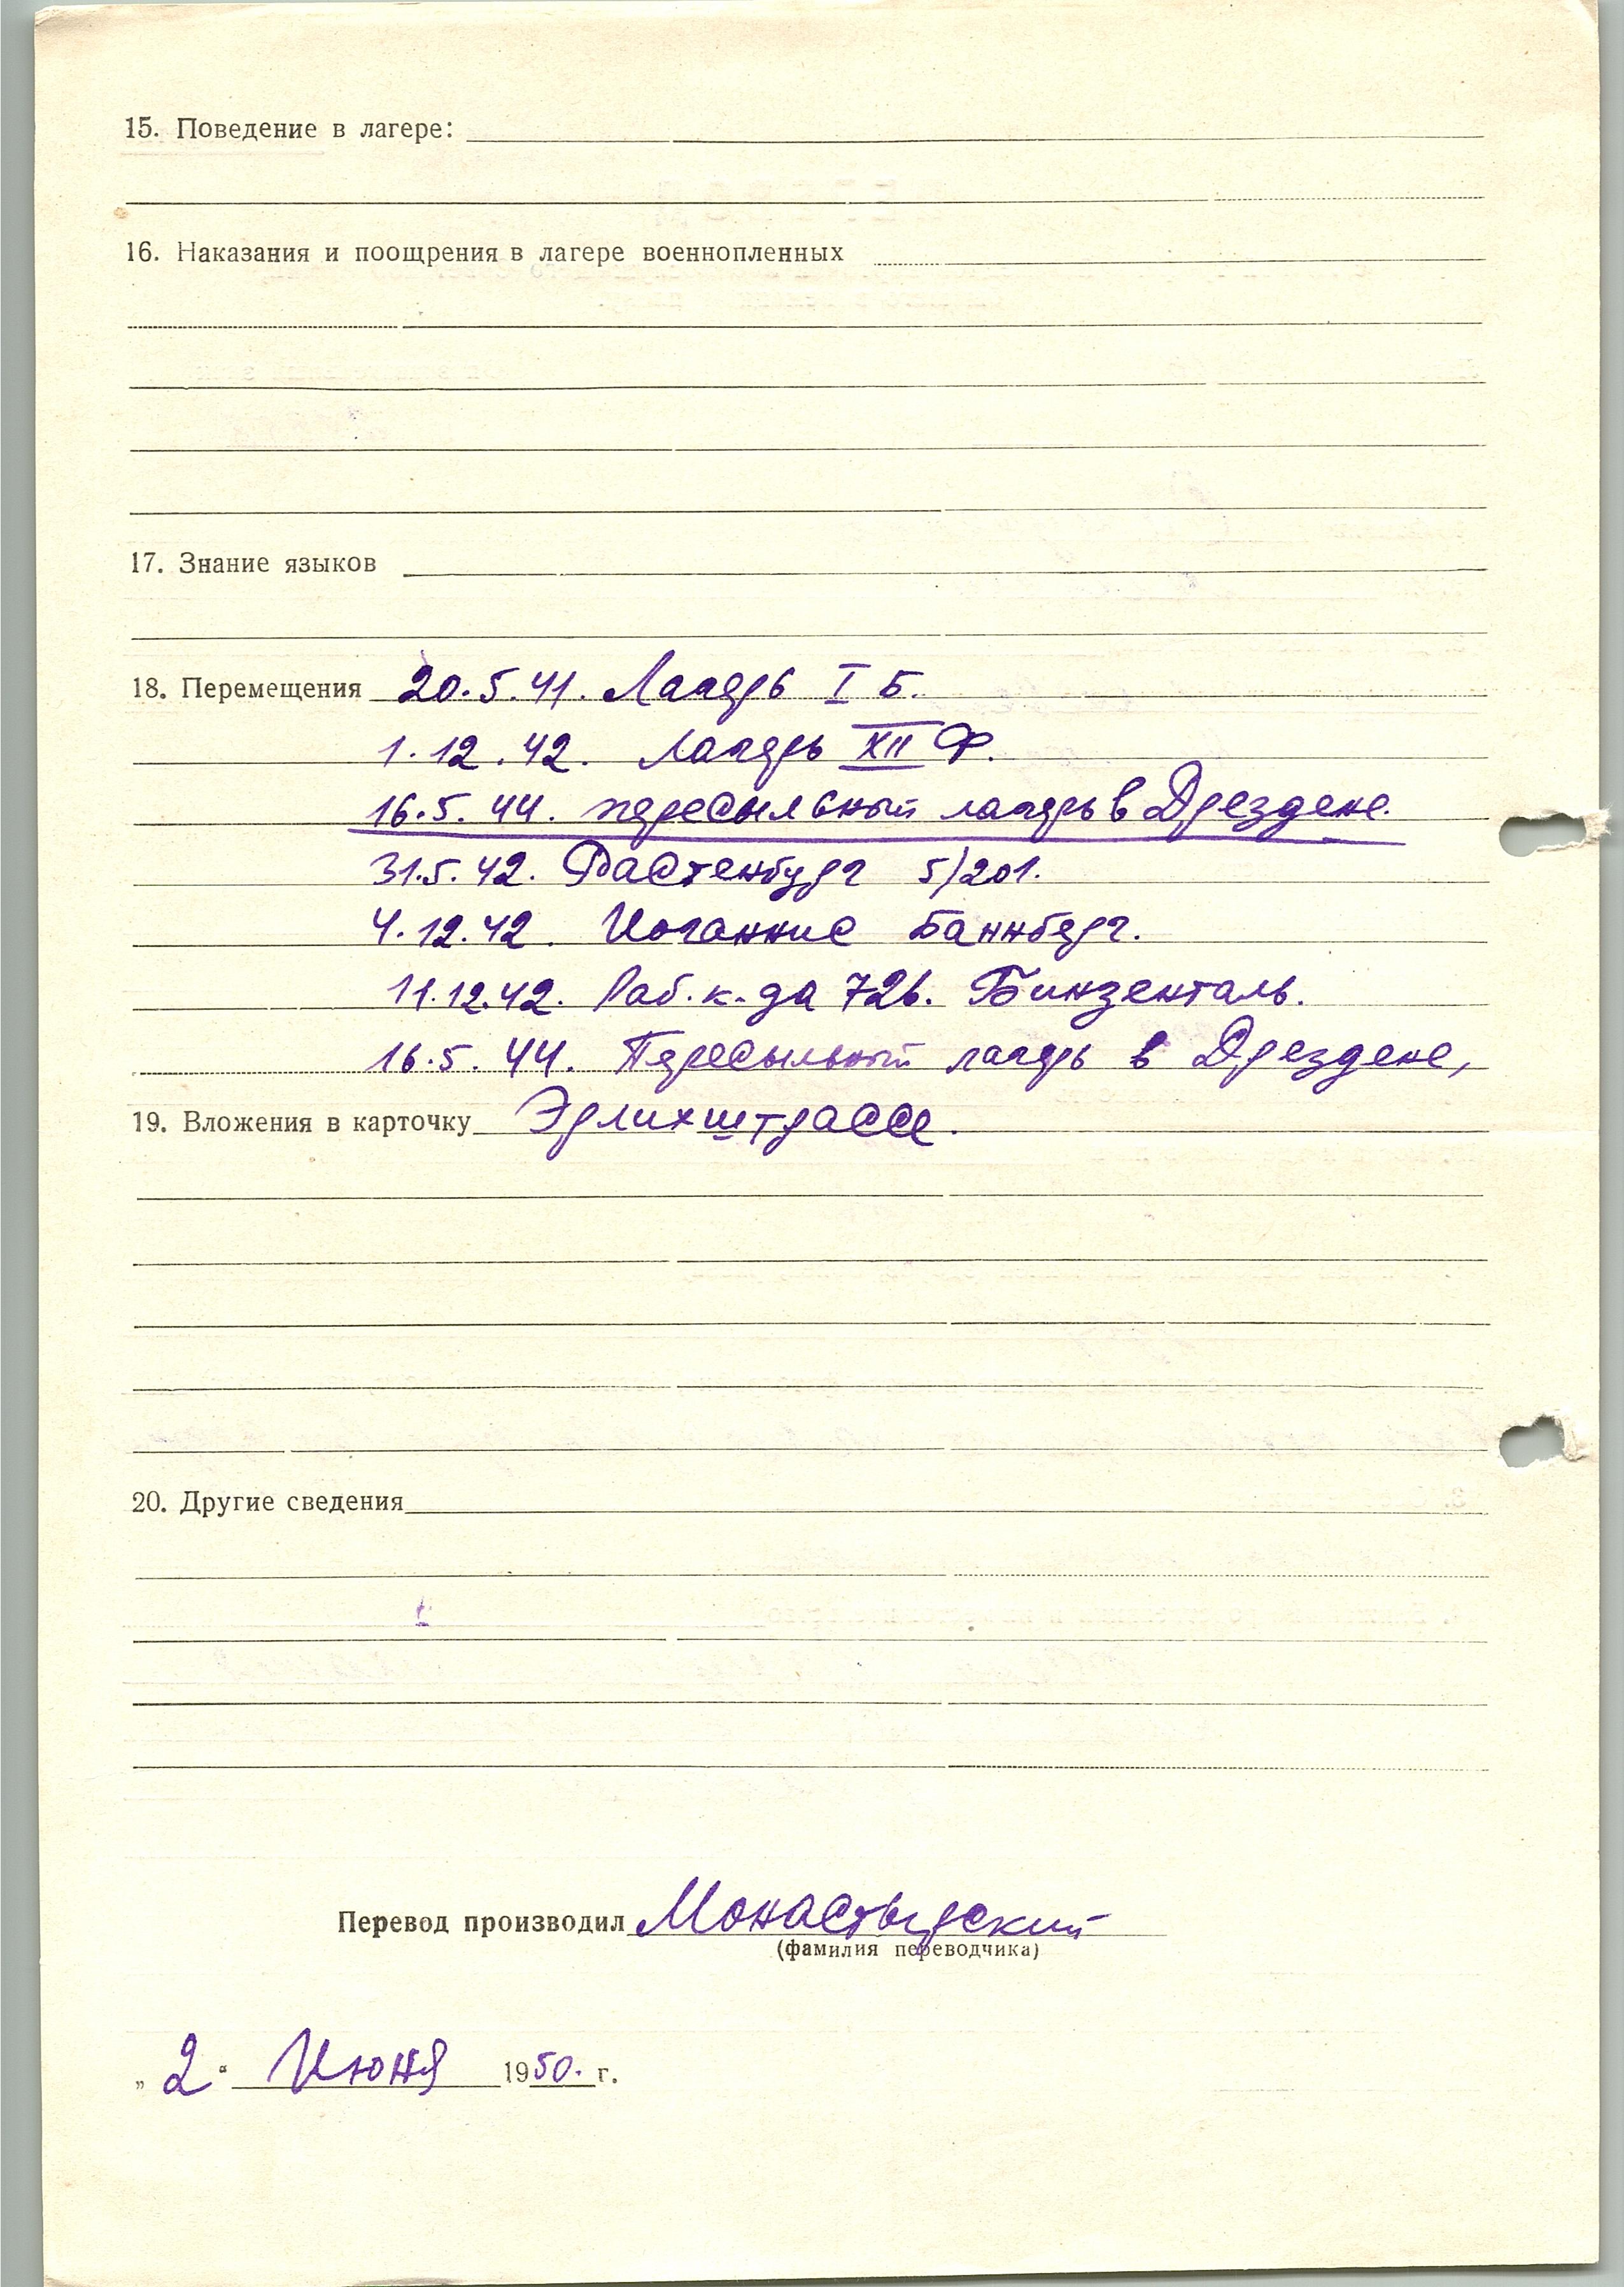 15. Поведение в лагере:
16. Наказания и поощрения в лагере военнопленных
17. Знание языков
18. Перемещения 20.5.41. Лагерь I Б.
1.12.42. Лагерь XII Ф.
16.5.44. пересыльный лагерь в Дрездене.
31.5.42. Растенбург 5/201.
4.12.42. Иоганнис Баннберг.
11.12.42. Раб. к-да 726. Бинзенталь.
16.5.44. Пересыльный лагерь в Дрездене,
19. Вложения в карточку Эрлихштрассе.
20. Другие сведения
Перевод производил Монастырский
(фамилия переводчика)
„2“ Июня 1950. г.